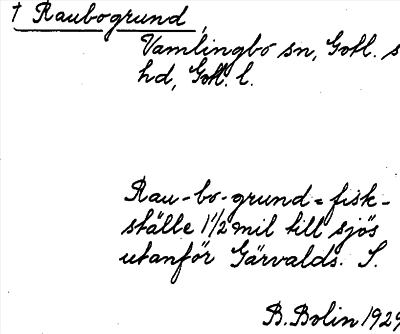 † Raubogrund,
Vamlingbo sn, Gotl. s
hd, Gotl. l.
Rau-bo-grund = fisk-
ställe 1 1/2 mil till sjös
utanför Gärvalds. S.
B. Bolin 1929